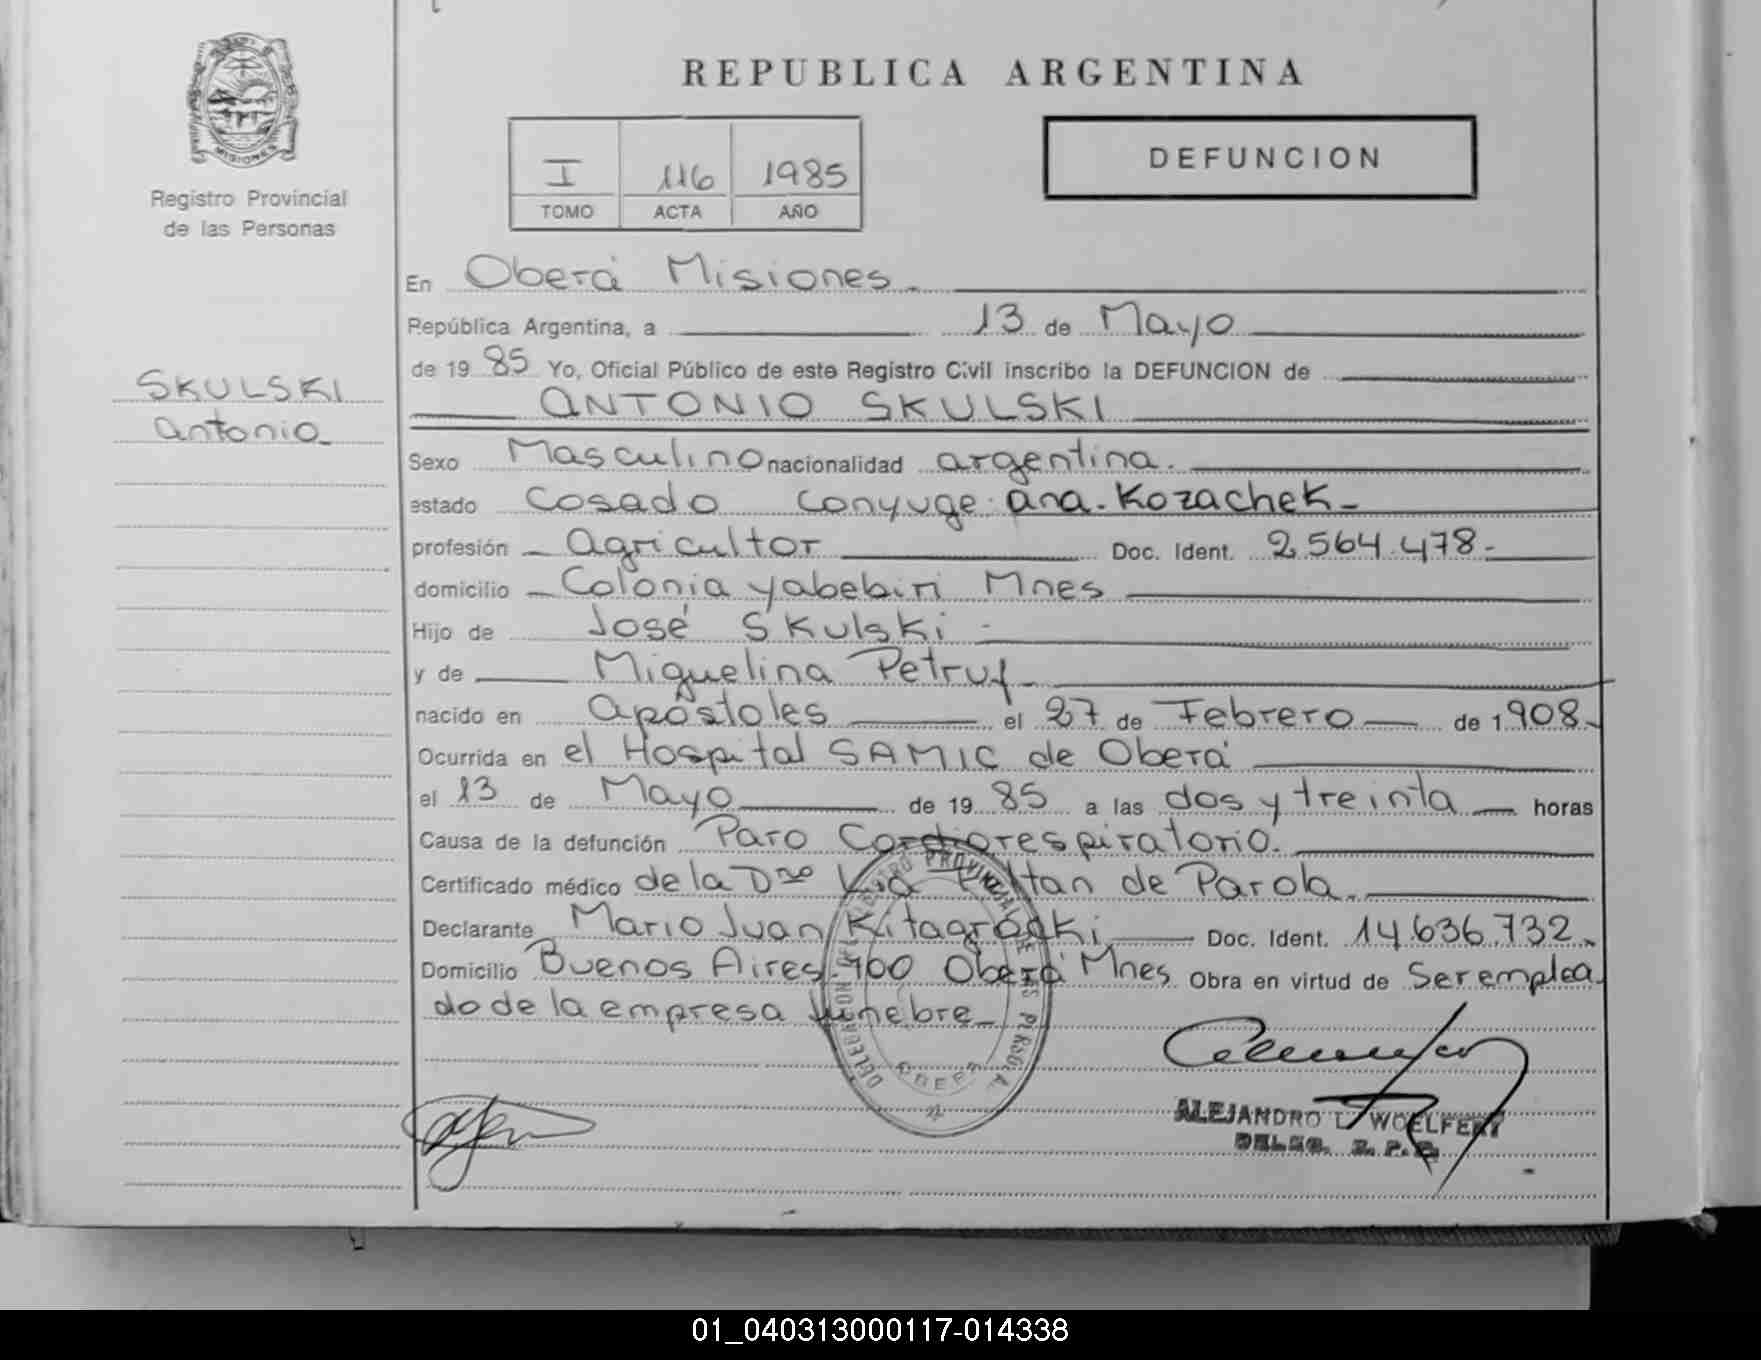 REPUBLICA ARGENTINA
MISIONES
Registro Provincial
de las Personas
I 116 1985
TOMO ACTA AÑO
DEFUNCION
SKULSKI
Antonio
En Oberá Misiones.
República Argentina, a 13 de Mayo
de 19 85 Yo, Oficial Público de este Registro Civil inscribo la DEFUNCION de
ANTONIO SKULSKI
Sexo Masculino nacionalidad argentina.
estado Casado Conyuge: Ana. Kozachek-
profesión - Agricultor Doc. Ident. 2.564.478-
domicilio - Colonia Yabebiri Mnes
Hijo de José Skulski -
y de Miguelina Petruf
nacido en Apóstoles el 27 de Febrero de 1908-
Ocurrida en el Hospital SAMIC de Oberá
el 13 de Mayo de 19 85 a las dos y treinta horas
Causa de la defunción Paro Cardiorespiratorio.
Certificado médico de la Dra de Parola.
Declarante Mario Juan Doc. Ident. 14.636.732-
Domicilio Buenos Aires Oberá Mnes Obra en virtud de Ser emplea
do de la empresa funebre-
ALEJANDRO L. WOELFERT
DELEG. R. P. P.
01_040313000117-014338